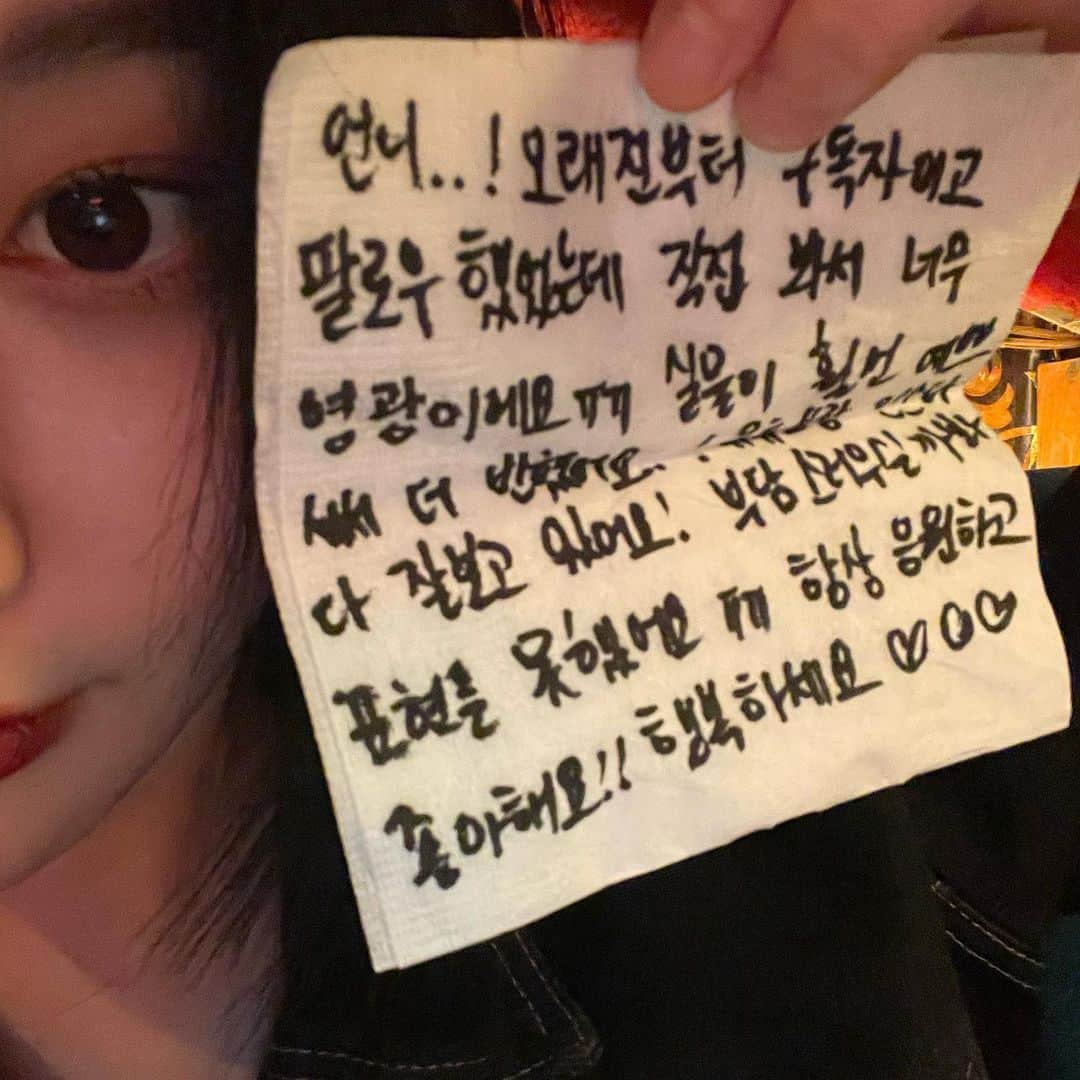 언니..! 오래전부터 구독자이고
팔로우 했었는데 직접 봐서 너무
영광이에요ㅠㅠ 실물이 훨번
쎄 더 반했어요..!
다 잘보고 있어요! 부담스러우실까봐
표현을 못했어요 ㅠㅠ 항상 응원하고
좋아해요!! 행복하세요 ♡♡♡